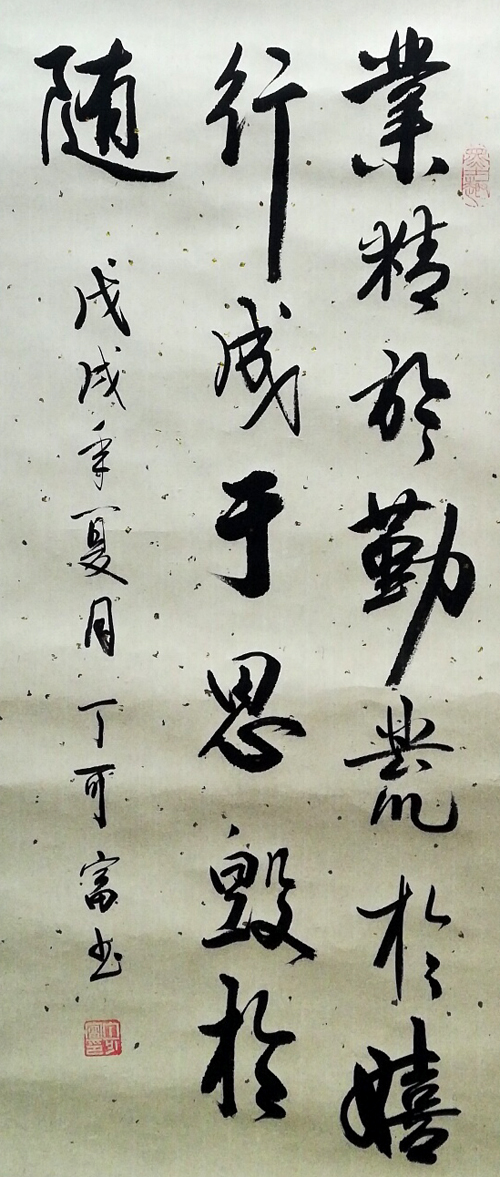 業精於勤荒於嬉
行成于思毀於
随
戊戌年夏月丁可富书